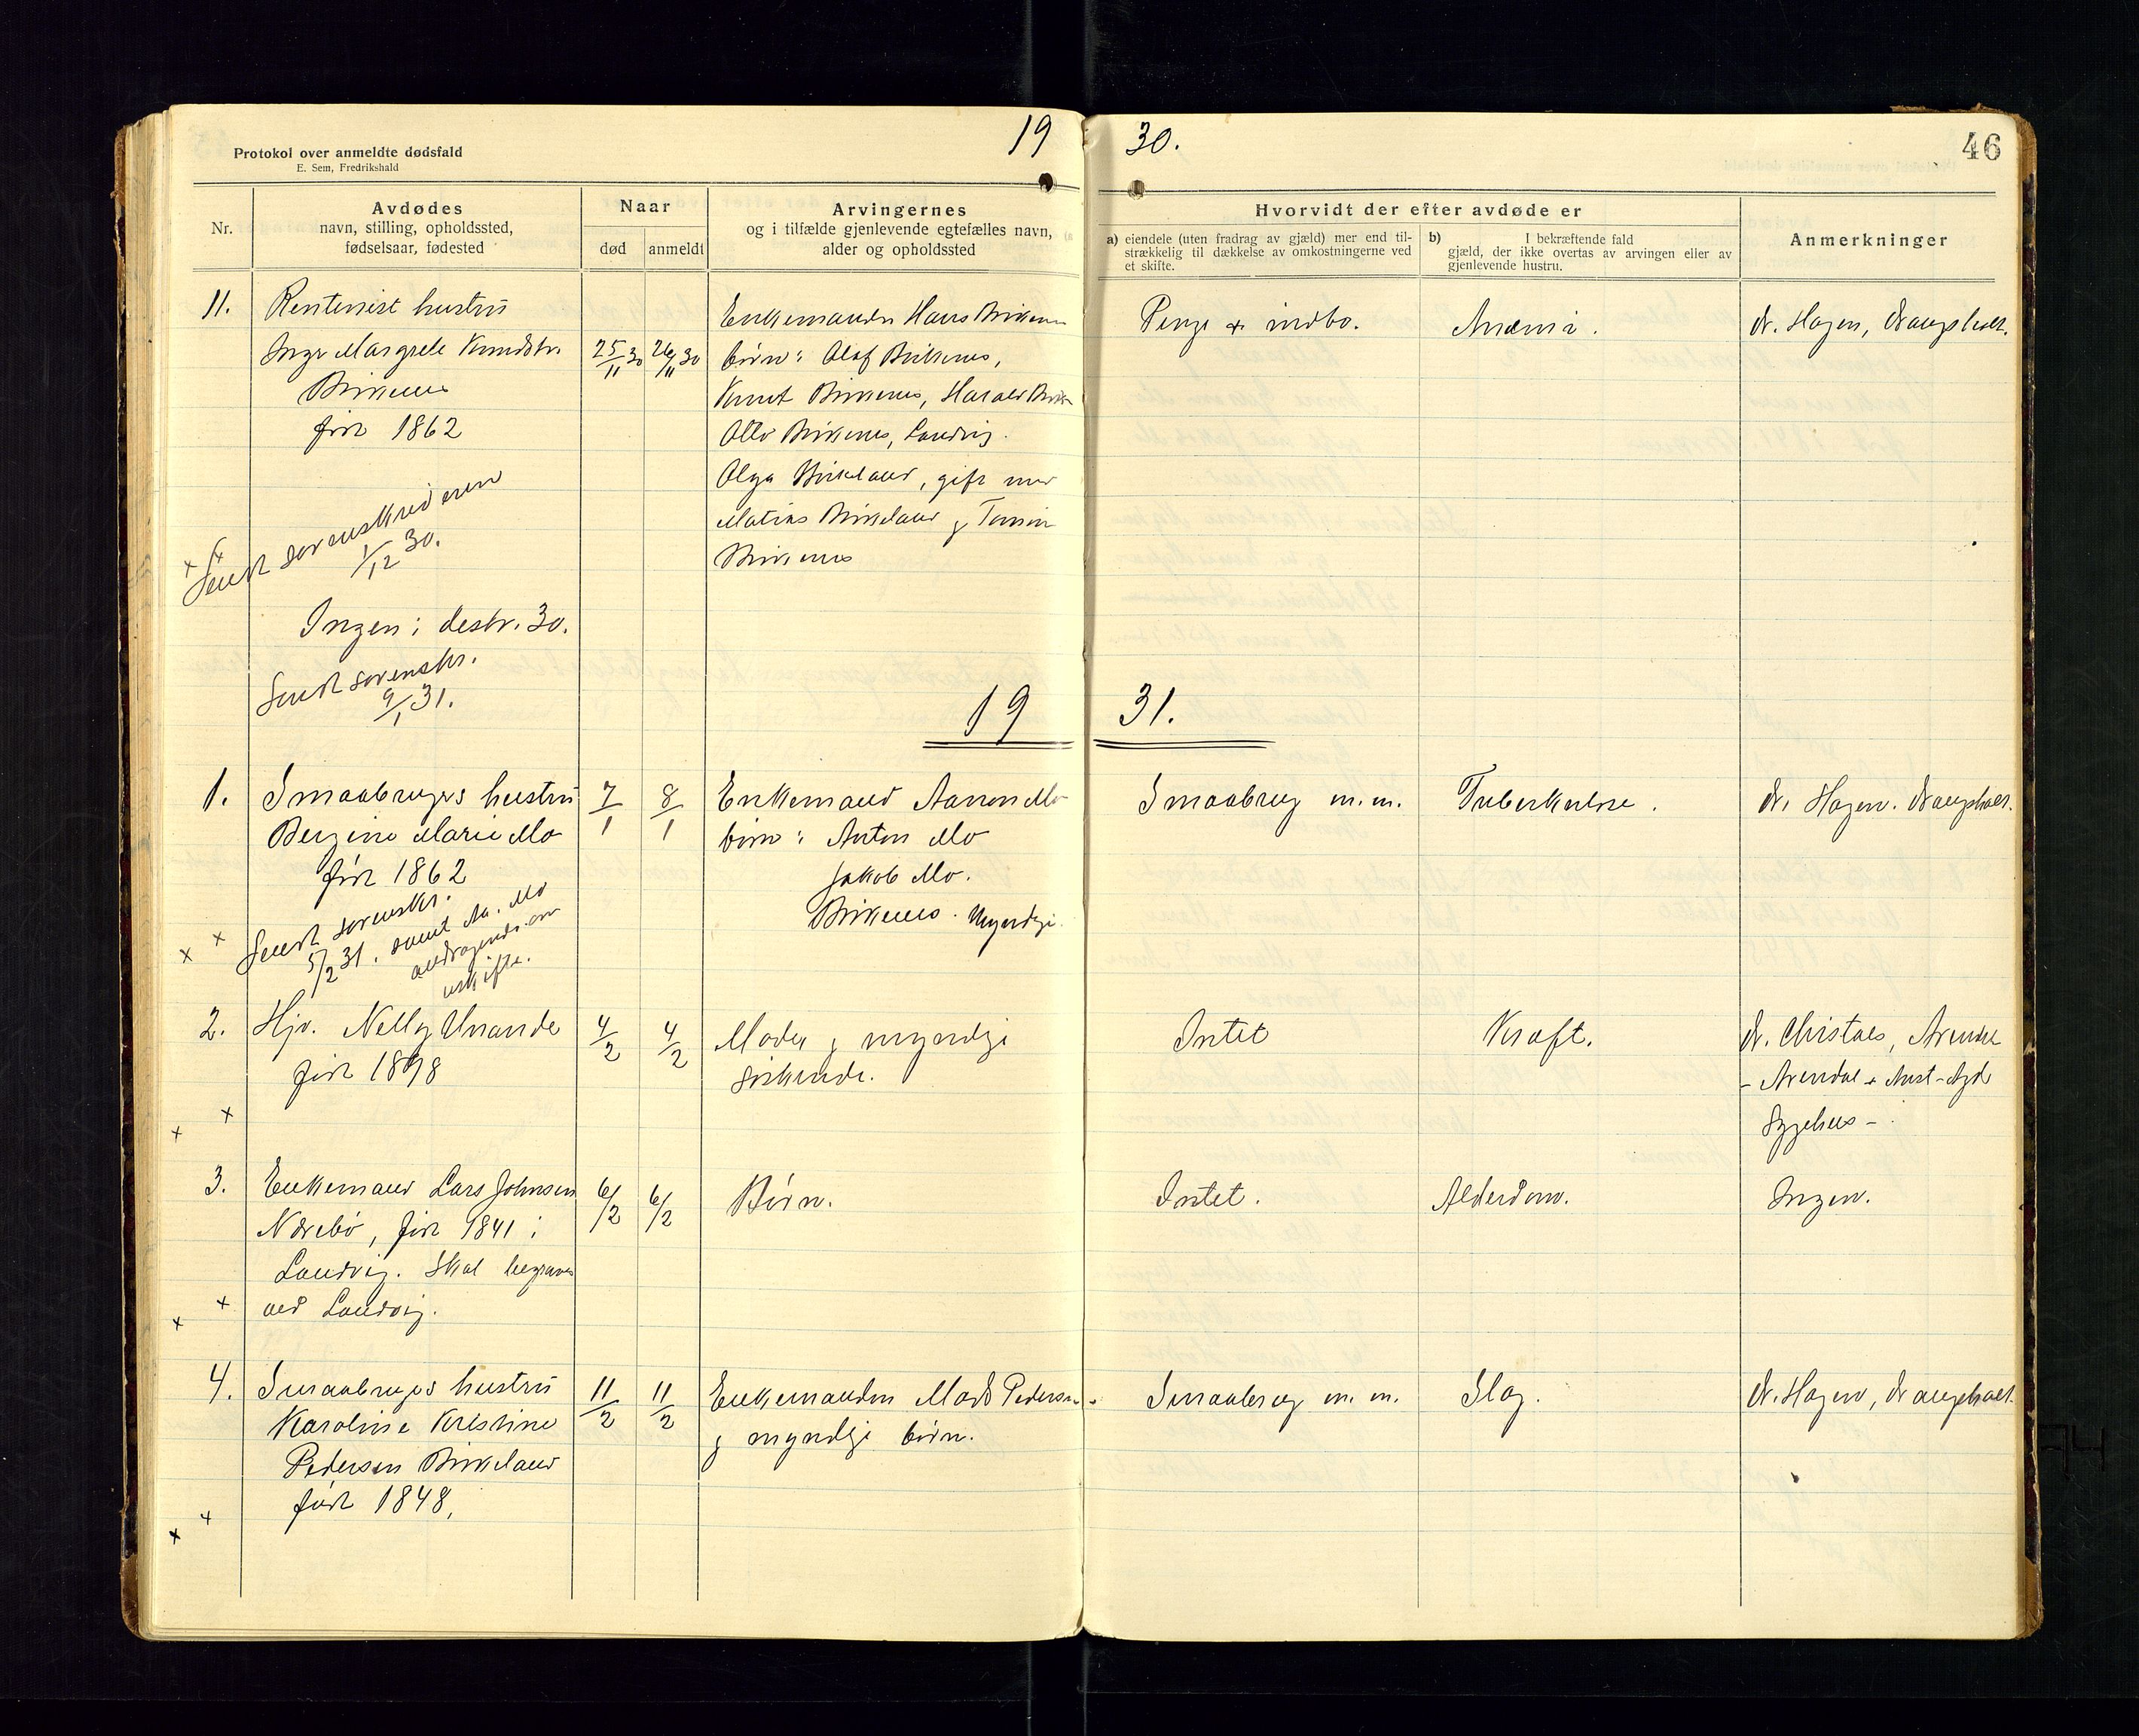 Protokol over anmeldte dødsfald
E. Sem, Fredrikshald
19 30.
46
Nr.
Avdødes
navn, stilling, opholdssted,
fødselsaar, fødested
Naar
død
anmeldt
Arvingernes
og i tilfælde gjenlevende egtefælles navn,
alder og opholdssted
Hvorvidt der efter avdøde er
a) eiendele (uten fradrag av gjæld) mer end til-
strækkelig til dækkelse av omkostningerne ved
et skifte.
b) I bekræftende fald
gjæld, der ikke overtas av arvingen eller av
gjenlevende hustru.
Anmerkninger
11.
Rentenist hustru
Inge Margrete Knudstr.
Birkenes
født 1862
25/11 30
26/11 30
Enkemanden Hans Birkenes
børn: Olaf Birkenes,
Knut Birkenes, Harald Birk.
Otto Birkenes, Landvig.
Olga Birkeland, gift med
Matias Birkeland og
Birkenes
Penge + indbo.
Anæmi.
dr. Hagen, Draugsholt.
Sendt sorenskriveren
1/12 30.
Ingen i desbr. 30.
Sendt sorenskr.
9/1 31.
19 31.
1.
Smaabrugers hustru
Bergine Marie Mo
født 1862
7/1
8/1
Enkemand Aanon Mo
børn: Anton Mo
Jakob Mo.
Birkenes. Myndige.
Smaabrug m.m.
Tuberkulose.
dr. Hagen. Draugsholt.
Sendt sorenskr.
5/2 31. samt Aa. Mo
andragende om
uskifte.
2.
Hjv. Nelly Uraande
født 1898
4/2
4/2
Moder og myndige
søskende.
Intet
Kræft.
dr. Christaes, Arendal
- Arendal + Aust-Agd
Sygehus -
3.
Enkemand Lars Johnsen
Nørebø, født 1841 i
Landvig. Skal begraves
ved Landvig.
6/2
6/2
Børn.
Intet.
Alderdom.
Ingen.
4.
Smaabrugers hustru
Karoline Kristine
Pedersen Birkeland
født 1848,
11/2
11/2
Enkemanden Mads Pedersen
og myndige børn.
Smaabrug m. m.
Slag.
dr. Hagen, Draugsholt.